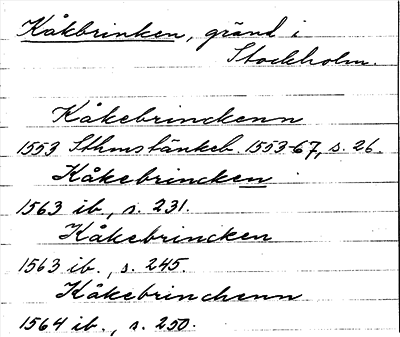 Kåkbrinken, gränd i
Stockholm.
Kåkebrinckenn
1553 Sthmstänkeb. 1553-67, s. 26.
Kåkebrincken
1563 ib., s. 231.
Kåkebrincken
1563 ib., s. 245.
Kåkebrinchenn
1564 ib., s. 250.